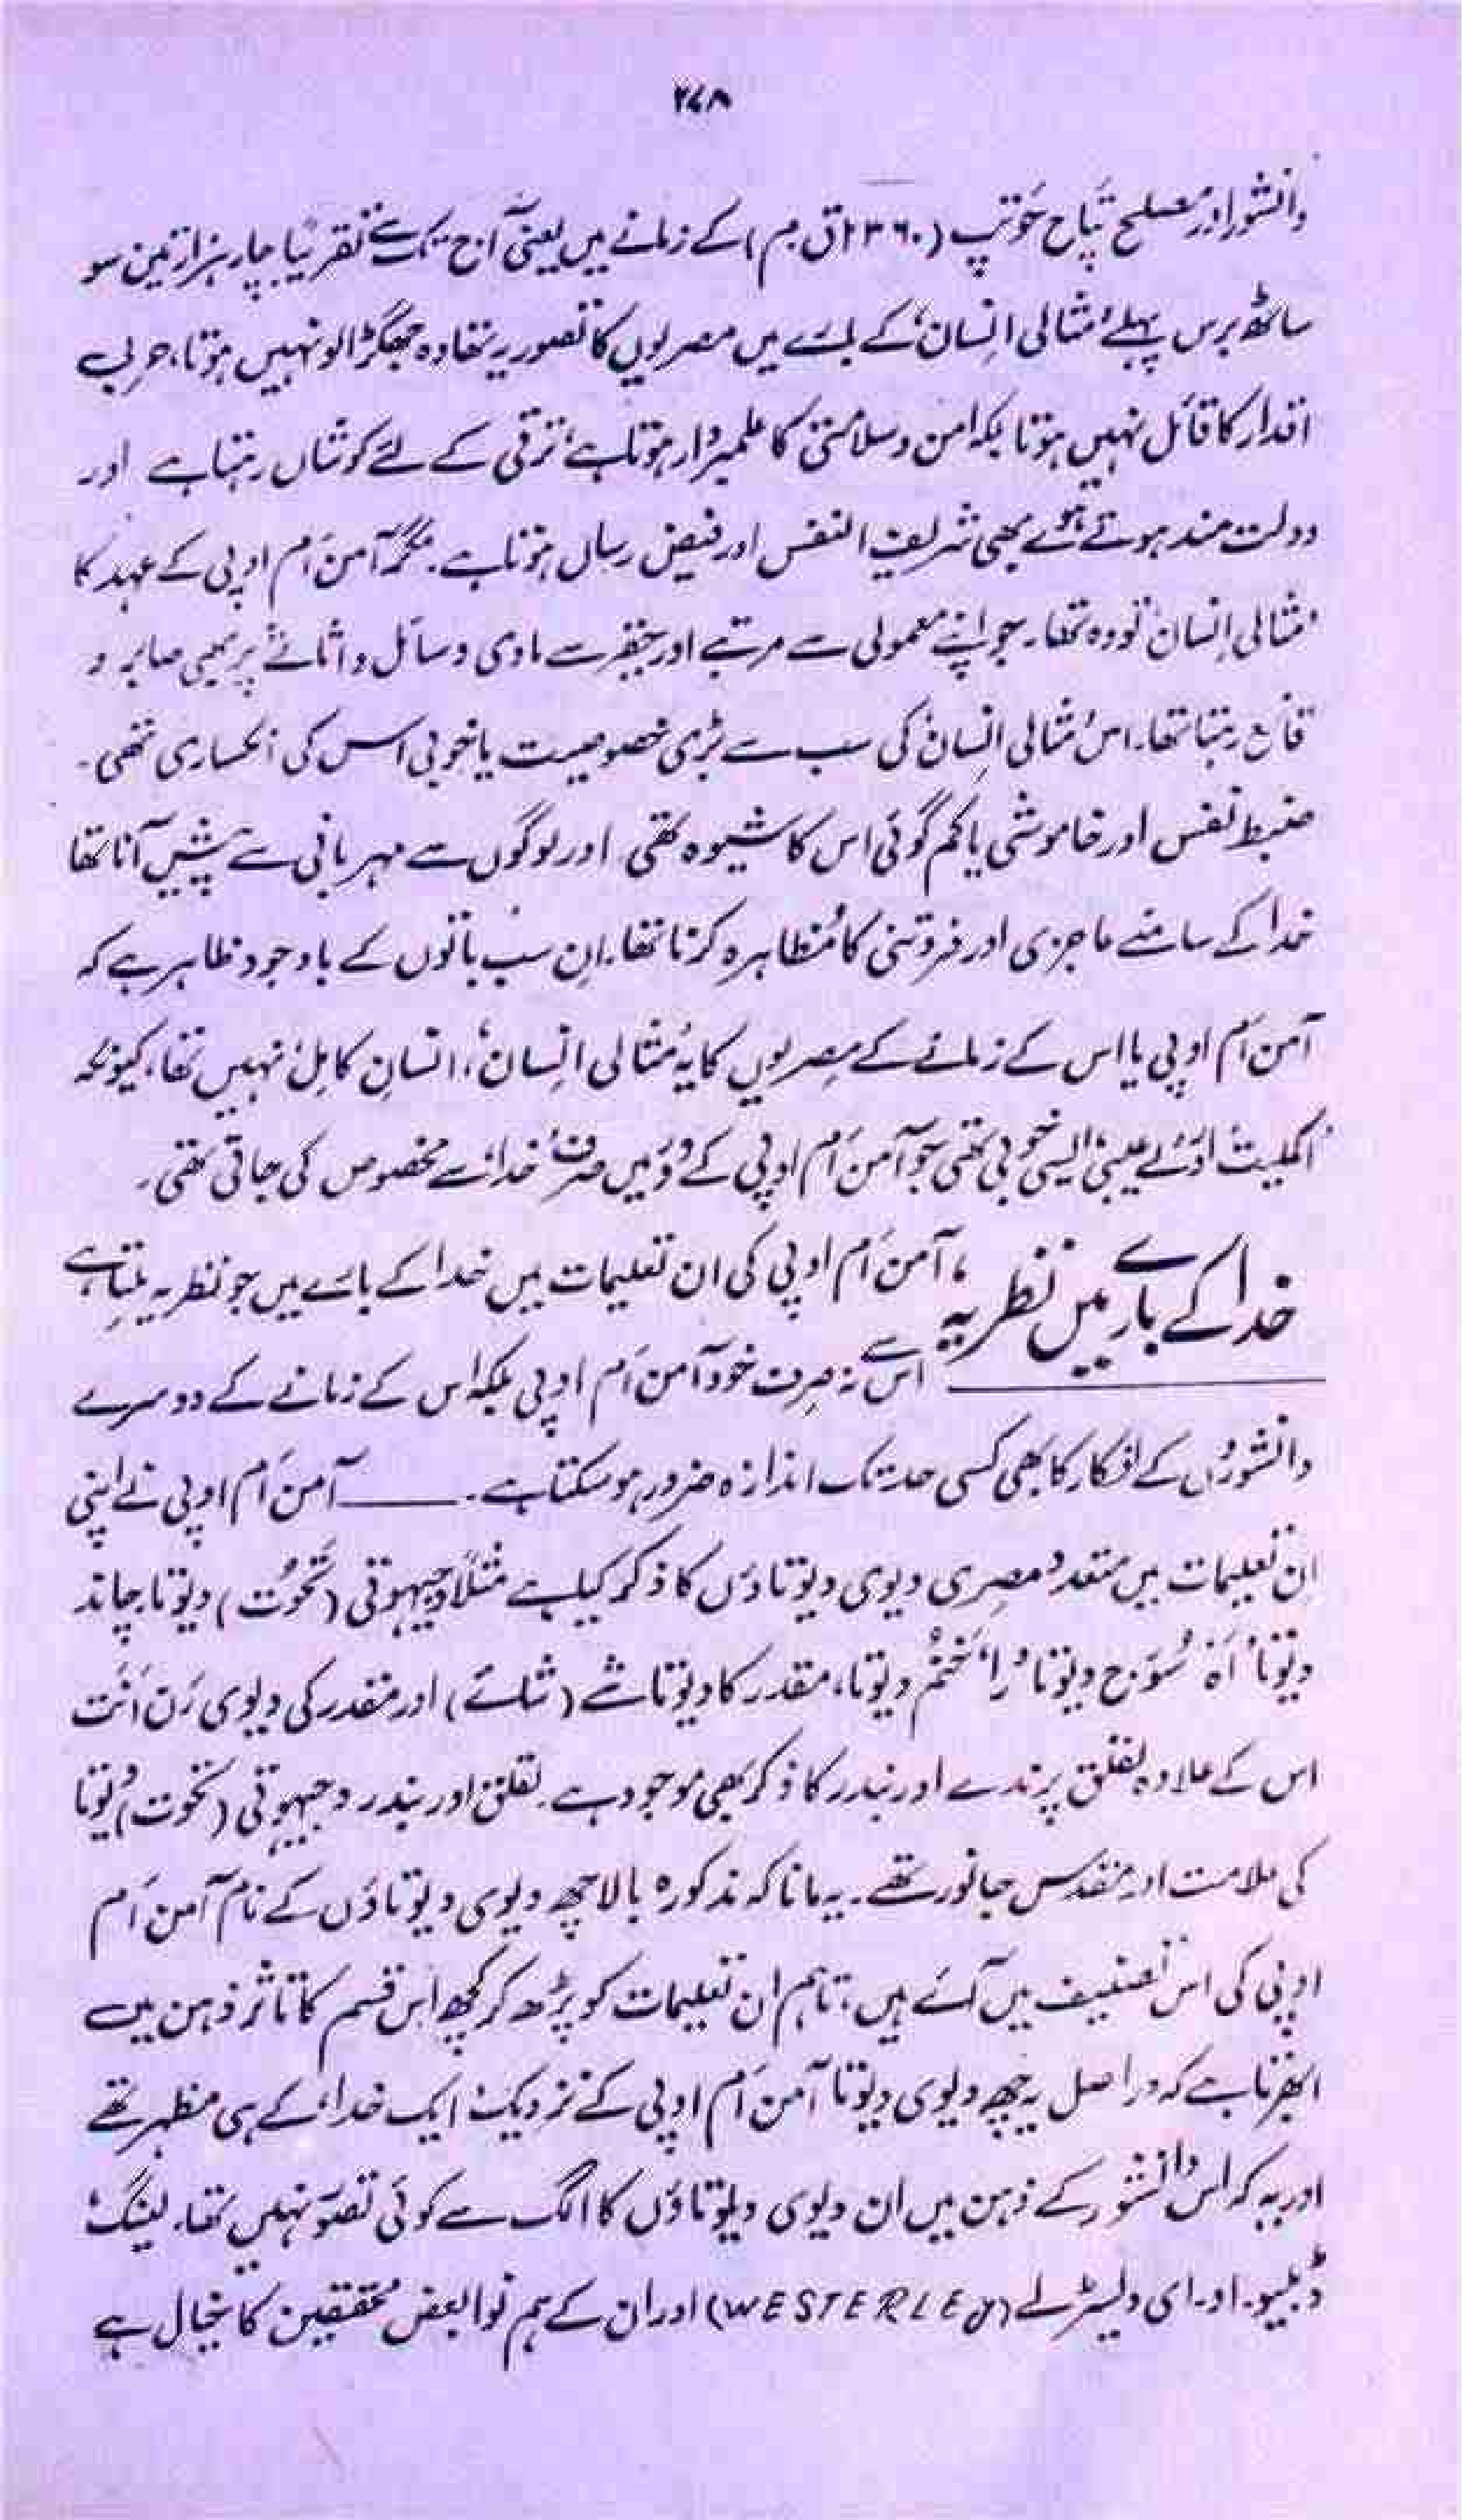 ۲۴۸
دانشور اور مصلح پتاح حوتپ (۲۳۶۰ ق م) کے زمانے میں یعنی آج تک سے تقریباً چار ہزار تین سو
ساٹھ برس پہلے 'مثالی انسان' کے بارے میں مصریوں کا تصور یہ تھا وہ جھگڑالو نہیں ہوتا، حربی
اقدار کا قائل نہیں ہوتا بلکہ امن و سلامتی کا علمبردار ہوتا ہے، ترقی کے لئے کوشاں رہتا ہے اور
دولت مند ہوتے ہوئے بھی شریف النفس اور فیض رساں ہوتا ہے۔ مگر آمن اَم اوپی کے عہد کا
'مثالی انسان' تو وہ تھا۔ جو اپنے معمولی سے مرتبے اور حقیر سے مادی وسائل و اثاثے پر بھی صابر و
قانع رہتا تھا۔ اس 'مثالی انسان' کی سب سے بڑی خصوصیت یا خوبی اس کی انکساری تھی۔
ضبط نفس اور خاموشی یا کم گوئی اس کا شیوہ تھی، اور لوگوں سے مہربانی سے پیش آتا تھا
خدا کے سامنے عاجزی اور فروتنی کا مُظاہرہ کرتا تھا۔ اِن سب باتوں کے باوجود ظاہر ہے کہ
آمن اَم اوپی یا اس کے زمانے کے مصریوں کا یہ 'مثالی انسان'، انسانِ کامل نہیں تھا، کیونکہ
'اکملیت' اور 'بے عیبی' ایسی خوبی تھی جو آمن اَم اوپی کے دَور میں صرف 'خدا' سے مخصوص کی جاتی تھی۔
خدا کے بارے میں نظریہ ، آمن اَم اوپی کی ان تعلیمات میں خدا کے بارے میں جو نظریہ ملتا ہے
اس سے نہ صرف خود آمن اَم اوپی بلکہ اس کے زمانے کے دوسرے
دانشوروں کے افکار کا بھی کسی حد تک اندازہ ضرور ہو سکتا ہے۔ ــــــ آمن اَم اوپی نے اپنی
اِن تعلیمات میں متعدد مصری دیوی دیوتاؤں کا ذکر کیا ہے مثلاً دجیہوتی (تحُوت) دیوتا، چاند
دیوتا 'اَہ' سُورج دیوتا 'را' خنم دیوتا، مقدر کا دیوتا شے (شائے) اور مقدر کی دیوی رَن اَنت
اس کے علاوہ لقلق پرندے اور بندر کا ذکر بھی موجود ہے۔ لقلق اور بندر دجیہوتی (تحوت) دیوتا
کی علامت اور مقدس جانور تھے۔ یہ مانا کہ مذکورہ بالا چھ دیوی دیوتاؤں کے نام آمن اَم
اوپی کی اس تصنیف میں آئے ہیں، تاہم ان تعلیمات کو پڑھ کر کچھ اس قسم کا تاثر ذہن میں
ابھرتا ہے کہ دراصل یہ چھ دیوی دیوتا آمن اَم اوپی کے نزدیک 'ایک خدا' کے ہی مظہر تھے
اور یہ کہ اس دانشور کے ذہن میں ان دیوی دیوتاؤں کا الگ سے کوئی تصوّر نہیں تھا۔
ڈبلیو۔ او۔ ای ویسٹرلے (WESTERLEY) اور ان کے ہم نوا بعض محققین کا خیال ہے